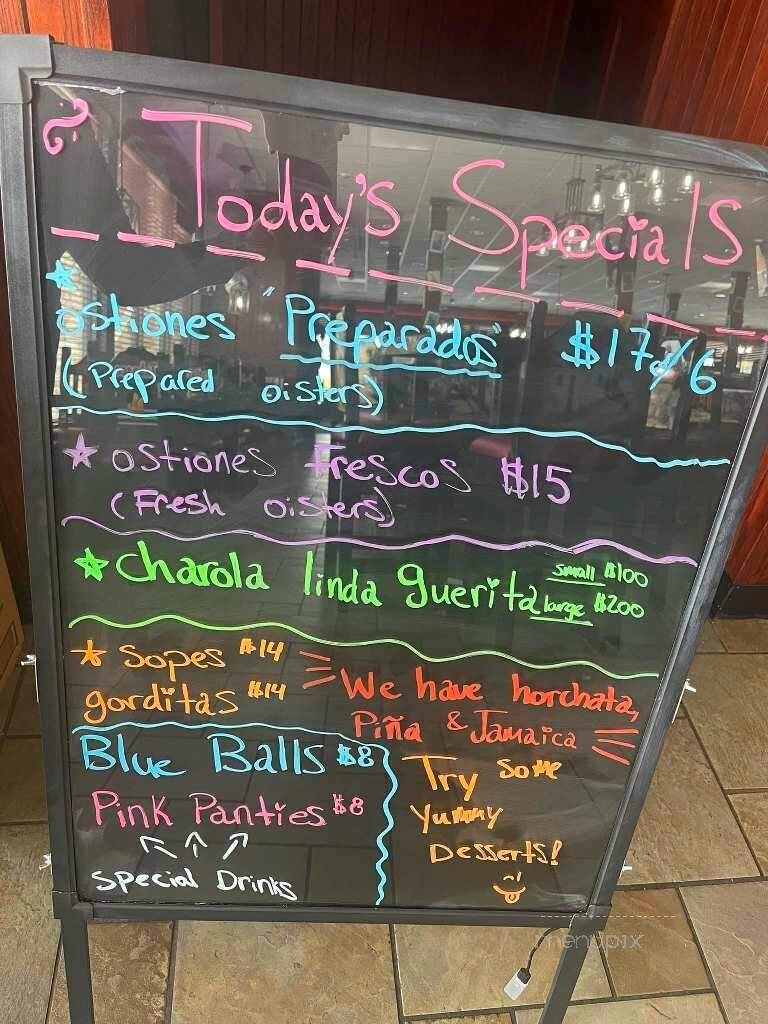 Today's Specials
ostiones "Preparados" $17 c/6
(Prepared oisters)
ostiones Frescos $15
(Fresh oisters)
Charola linda guerita
small $100
large $200
Sopes $14
gorditas $14
We have horchata,
Piña & Jamaica
Blue Balls $8
Pink Panties $8
Special Drinks
Try Some
Yummy
Desserts!
menupix